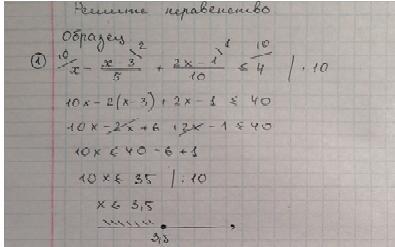 Решите неравенство
Образец
① ¹⁰/x - (x-3)²/5 + (2x-1)¹/10 ≤ ¹⁰/4 | · 10
10x - 2(x-3) + 2x - 1 ≤ 40
10x - 2x + 6 + 2x - 1 ≤ 40
10x ≤ 40 - 6 + 1
10x ≤ 35 | : 10
x ≤ 3,5
3,5